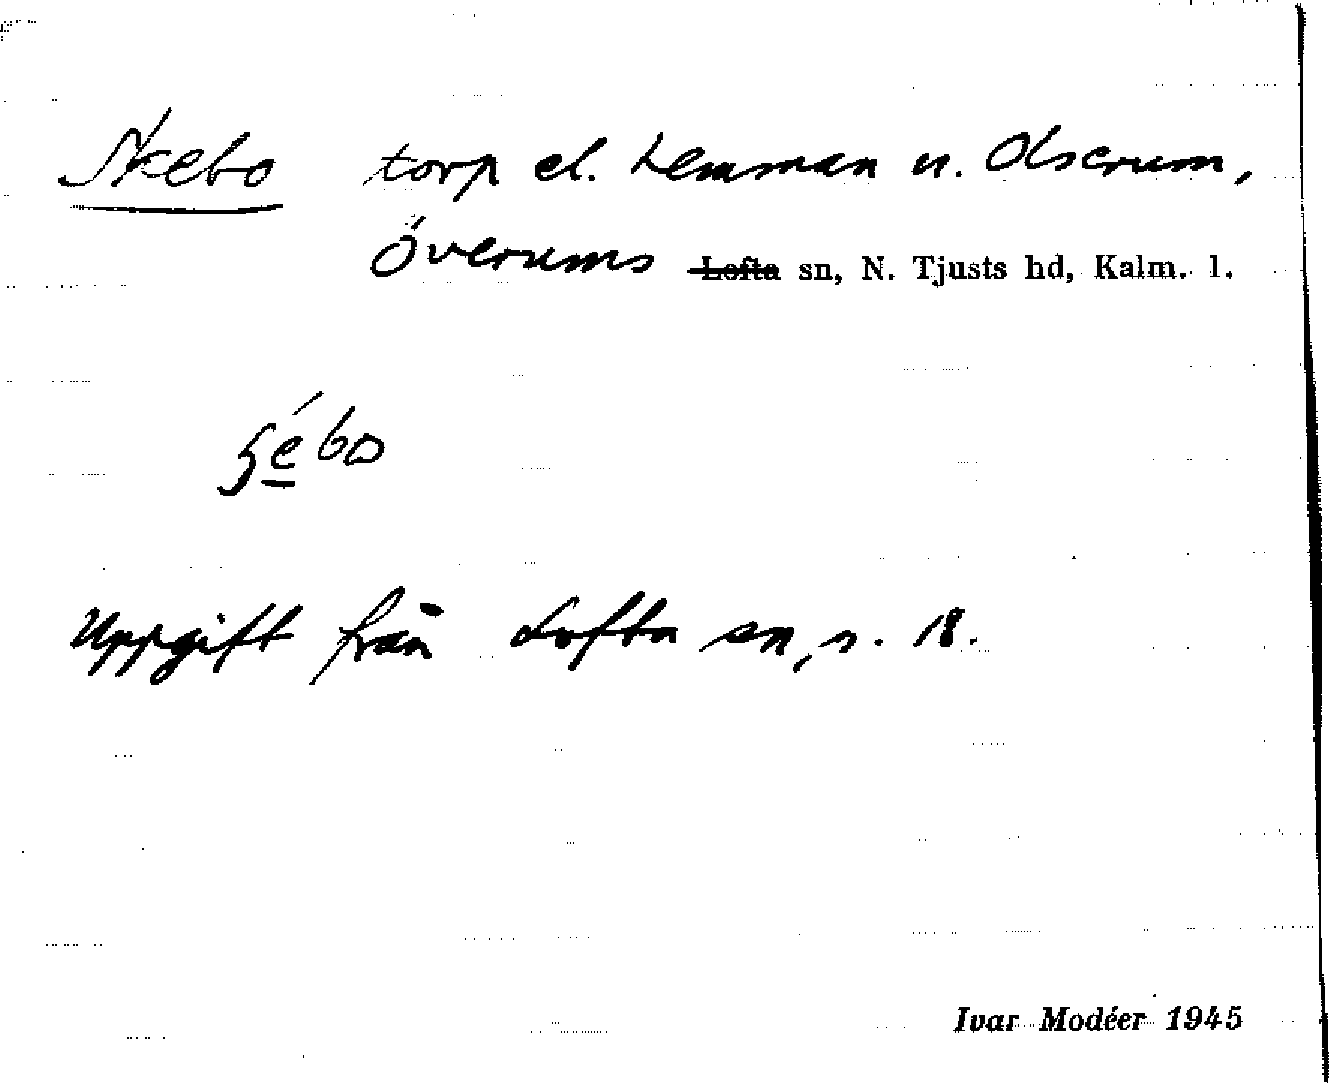 Skebo torp el. hemman u. Olserum,
Överums ~~Lofta~~ sn, N. Tjusts hd, Kalm. l.
Uppgift från Lofta sn, s. 18.
Ivar Modéer 1945